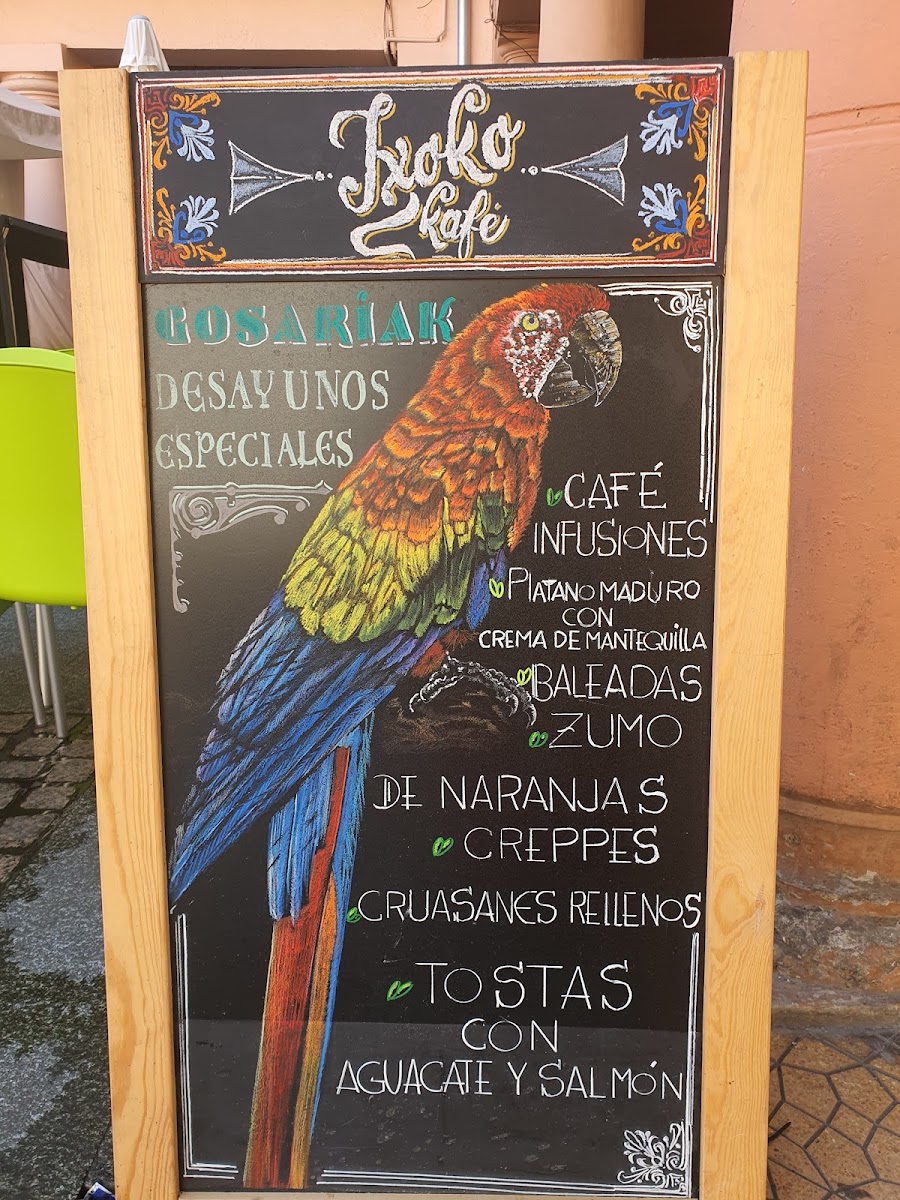 Ixoko
kafé
GOSARIAK
DESAYUNOS
ESPECIALES
CAFÉ
INFUSIONES
PLATANO MADURO
CON
CREMA DE MANTEQUILLA
BALEADAS
ZUMO
DE NARANJAS
CREPPES
CRUASANES RELLENOS
TOSTAS
CON
AGUACATE Y SALMÓN